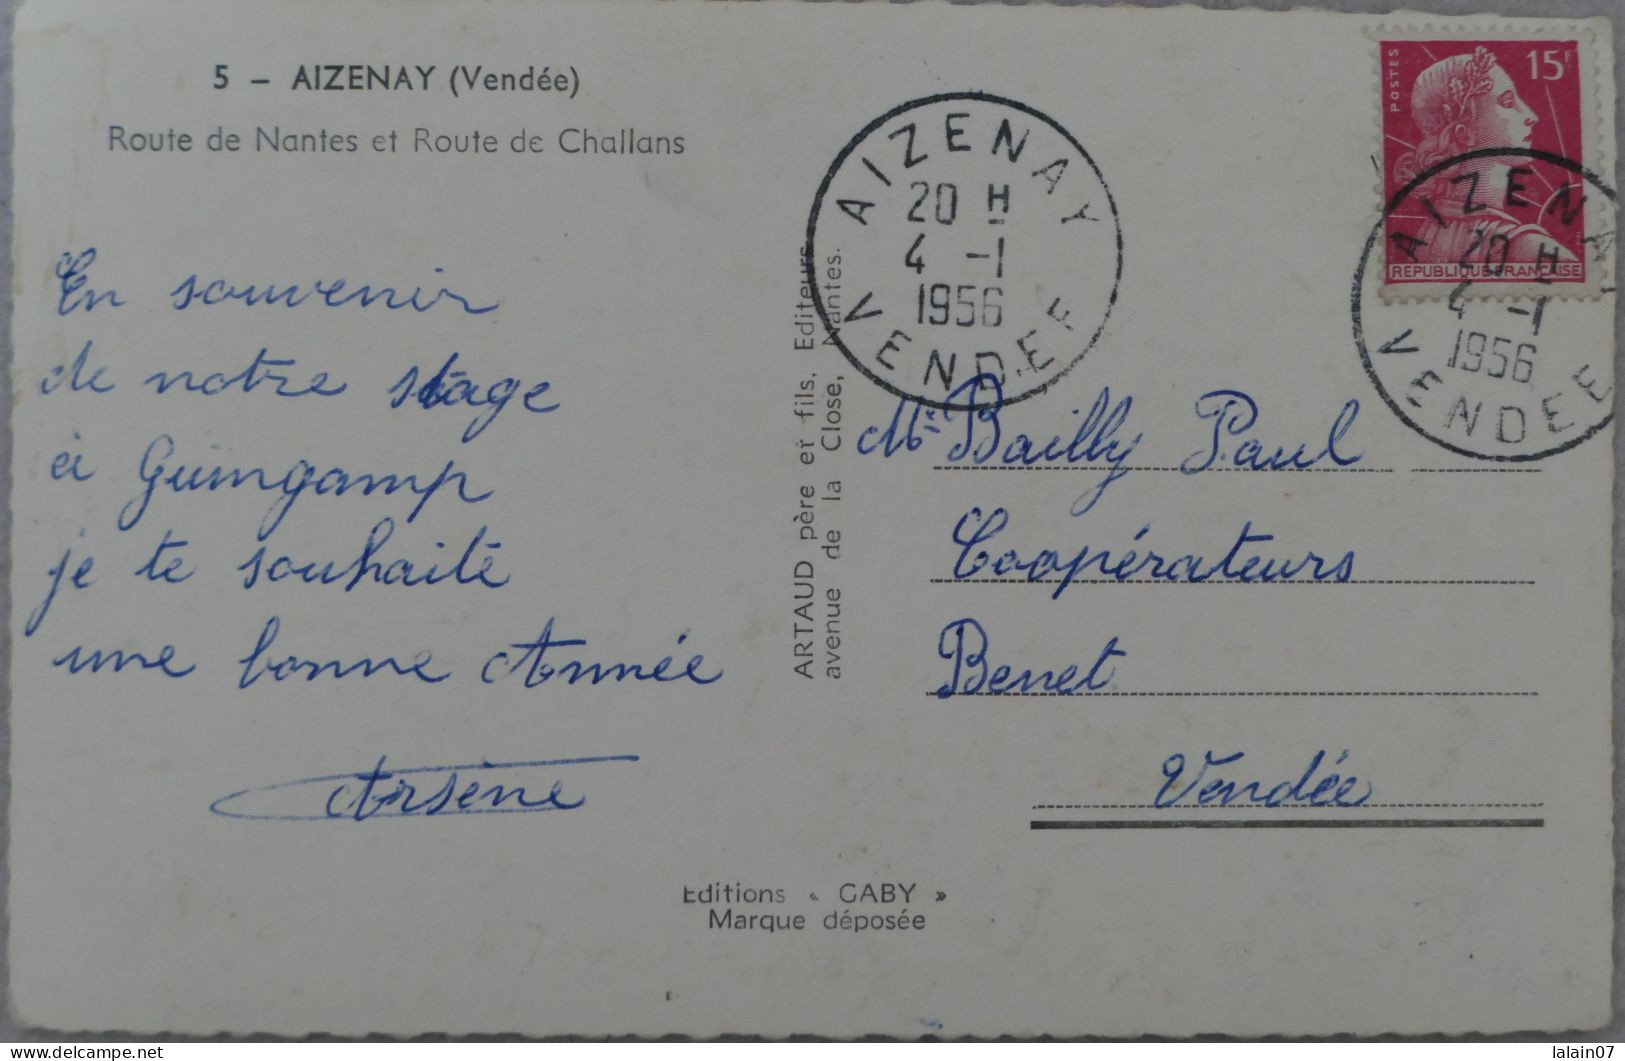 5 - AIZENAY (Vendée)
Route de Nantes et Route de Challans
En souvenir
de notre stage
à Guimgamp
je te souhaite
une bonne Année
Arsène
ARTAUD père et fils, Editeurs
avenue de la Close, Nantes.
Editions « GABY »
Marque déposée
AIZENAY
20 H
4 -1
1956
VENDEE
POSTES
15F
REPUBLIQUE FRANÇAISE
AIZENAY
20 H
4 -1
1956
VENDEE
Bailly Paul
Coopérateurs
Benet
Vendée
delcampe.net
lalain07